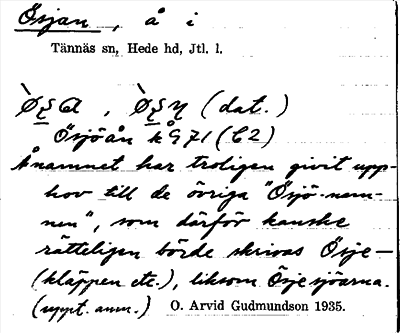 Ösjan, å i
Tännäs sn, Hede hd, Jtl. l.
(dat.)
Ösjöån k Å 971 (C2)
Ånamnet har troligen givit upp-
hov till de övriga "Ösjö-nam-
nen", som därför kanske
rätteligen börde skrivas Ösje-
(kläppen etc.), liksom Ösjesjöarna.
(uppt. anm.) O. Arvid Gudmundson 1935.